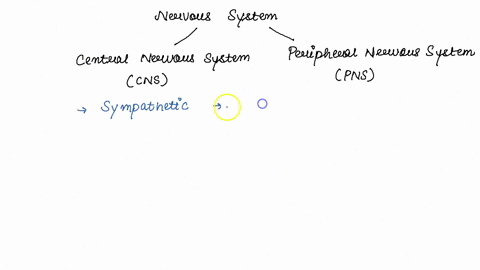 Nervous System
Central Nervous System
(CNS)
Peripheral Nervous System
(PNS)
→ Sympathetic →